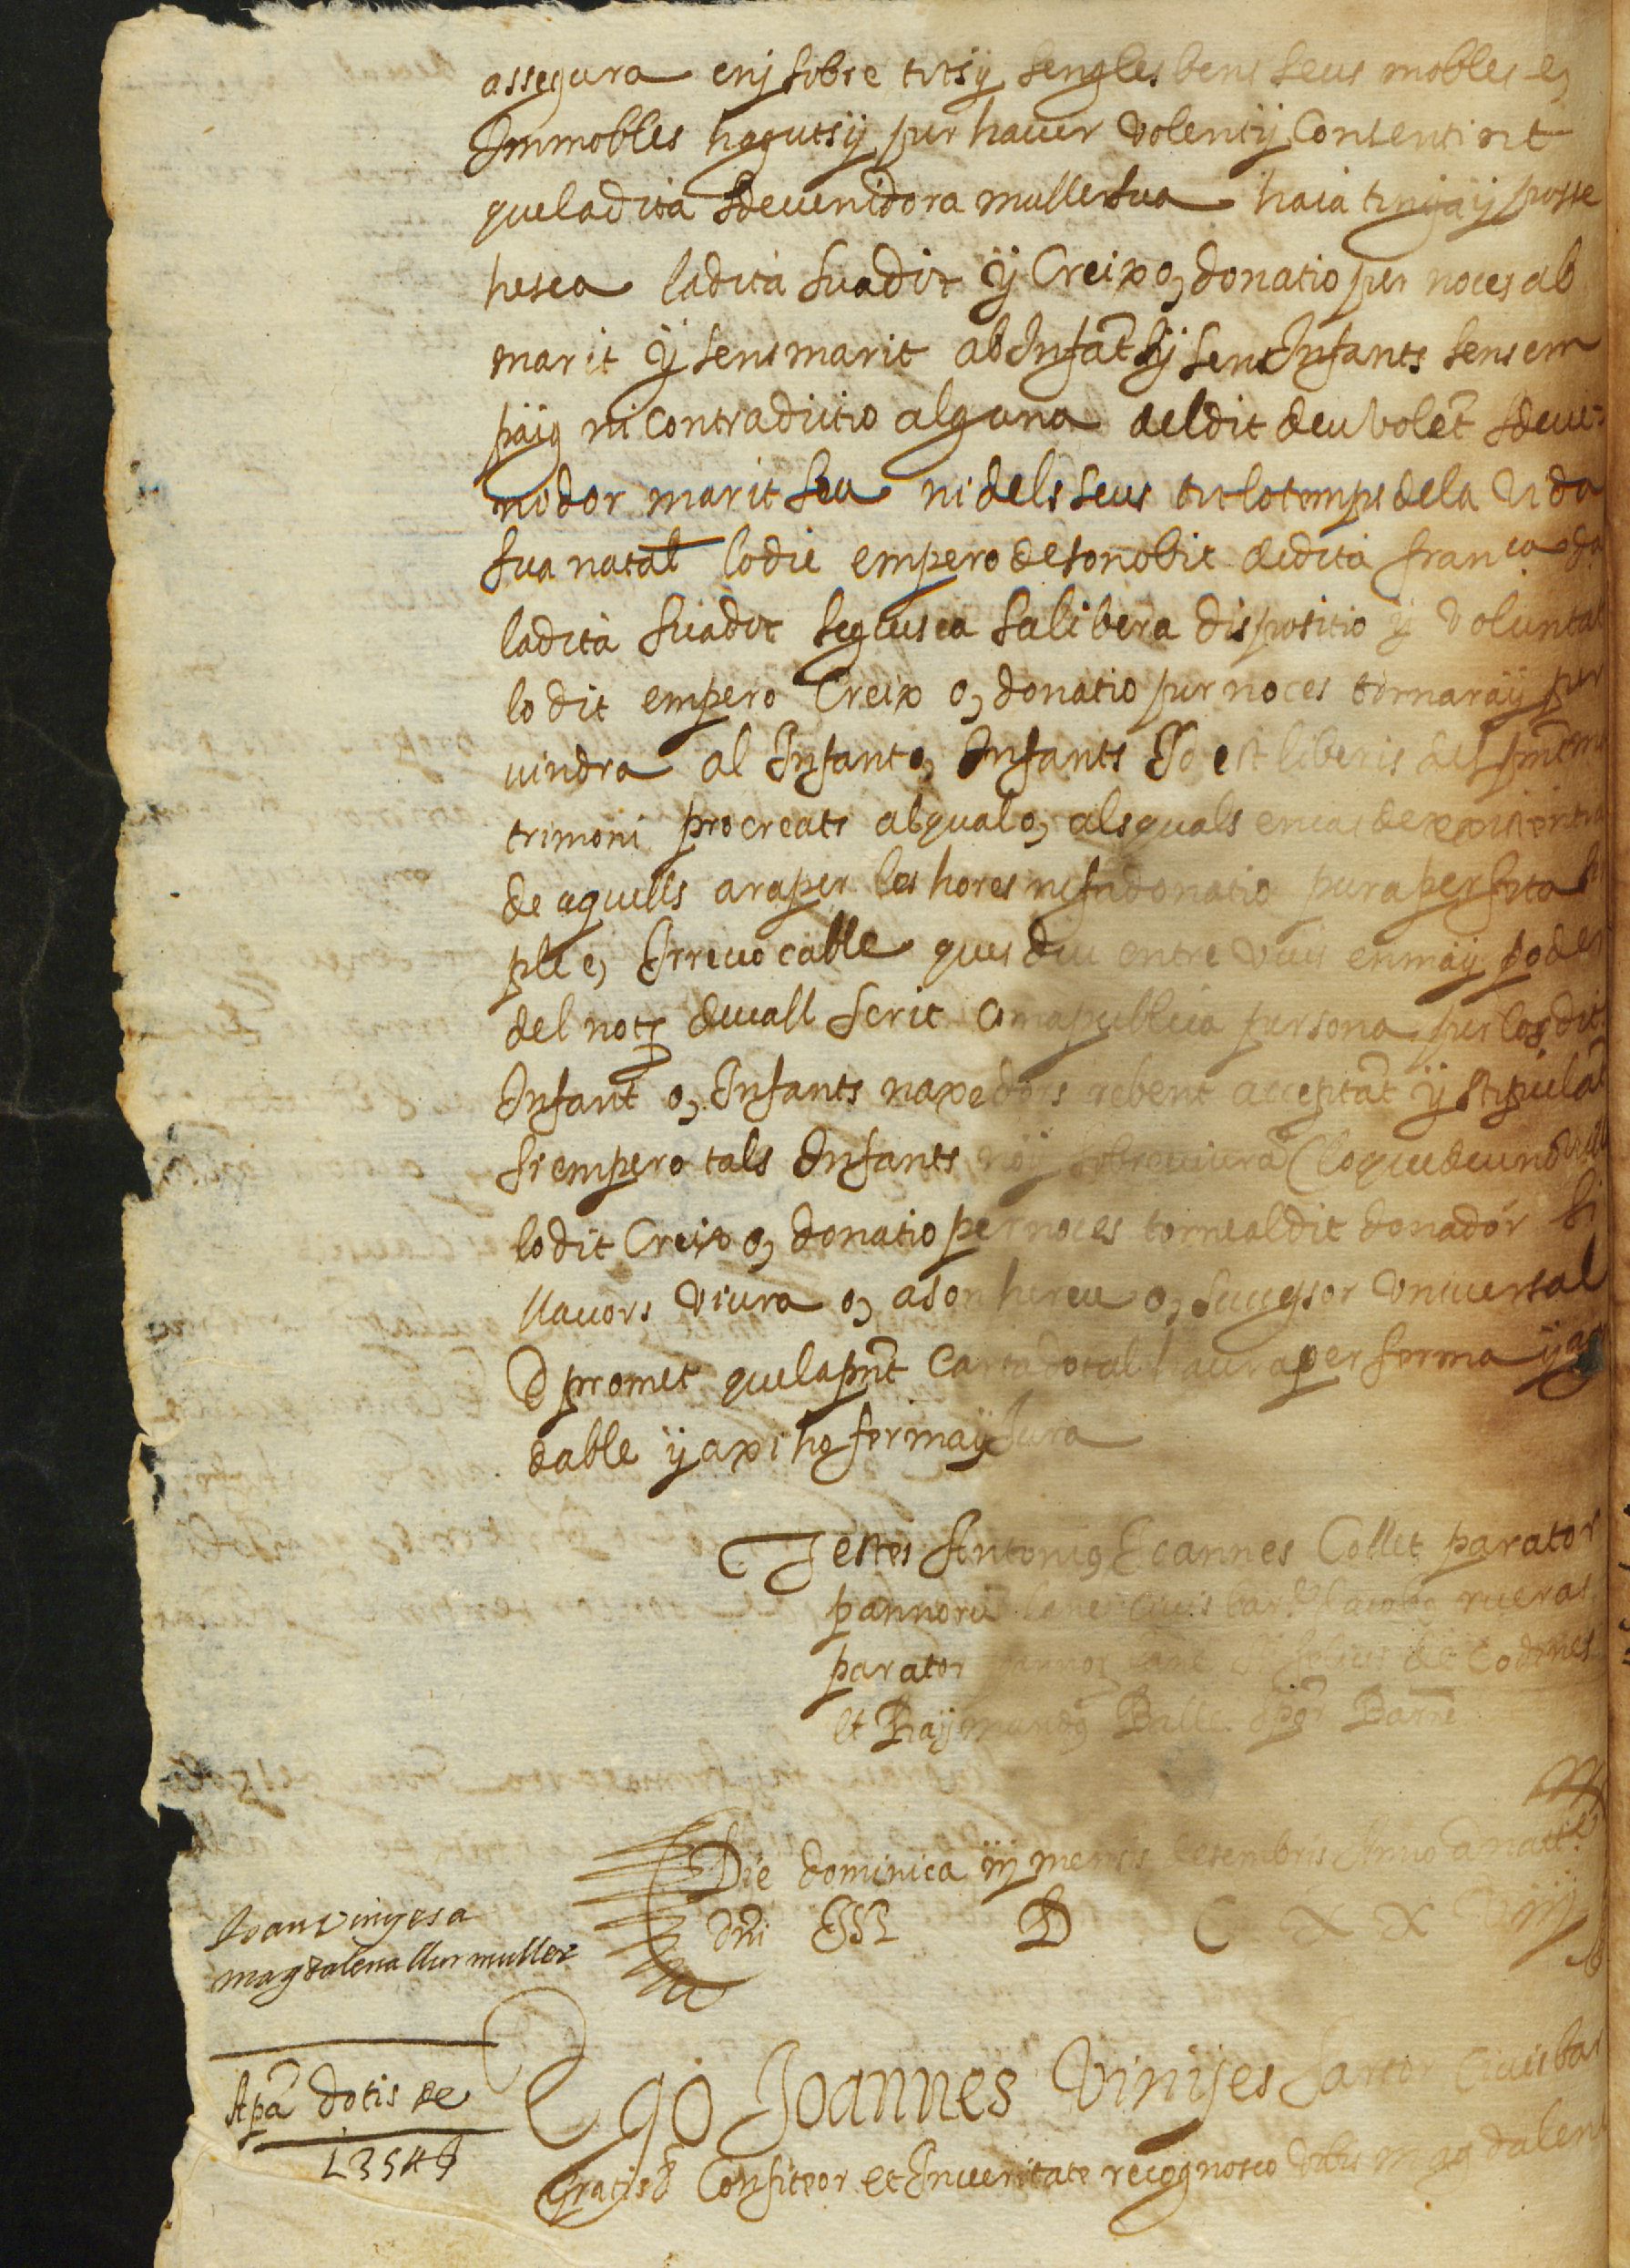 assegura en y sobre tots y sengles bens seus mobles e,
Immobles haguts y per hauer volent y Consentint
que la dita sdeuenidora muller sua haia tinga y posse
hesca la dita sua dot y Creix o, donatio per noces ab
marit y sens marit ab Infãts y sens Infants sens em
paig ni contradictio alguna del dit deu volẽt sdeue-
nidor marit seu ni dels seus tot lo temps de la vida
sua natal lo die empero de son obit de dita
la dita sua dot segues ca sa libera dispositio y voluntat
lo dit empero Creix o, donatio per noces tornara y per
vindra al Infant o, Infants Id est liberis del pnt ma
trimoni procreats al qual o, als quals en cas de existentia
de aquells ara per les hores ne fa donatio pura perfeta si
ple e, Irreuocable ques diu entre vius en ma y poder
del notȝ deuall scrit com a publica persona per los dit
Infant o, Infants naxedors rebent acceptãt y stipulãt
si empero tals Infants noy sobreuiura (lo que deu no vulla
lo dit Creix o, donatio per noces torne al dit donador si
llauors viura o, a son hereu o, successor vniuersal
E promet que la pnt Carta dotal haura per ferma y agra
dable y axi ho ferma y Jura
Testes Antoniꝰ Joannes Collet parator
pannorũ lane ciuis bar. Jacobꝰ rieras
parator pannoȝ lane de Codines
et Raymundꝰ Balle Barne
Die dominica iij mensis desembris Anno a natte
dni M D C X X viiij
Joan vinyes a
magdalena llur muller
Ego Joannes Vinyes Sartor Ciuis bar
Apa dotis de
L 354 ß
Gratis &c Confiteor et In ueritate recognosco vobis magdalene